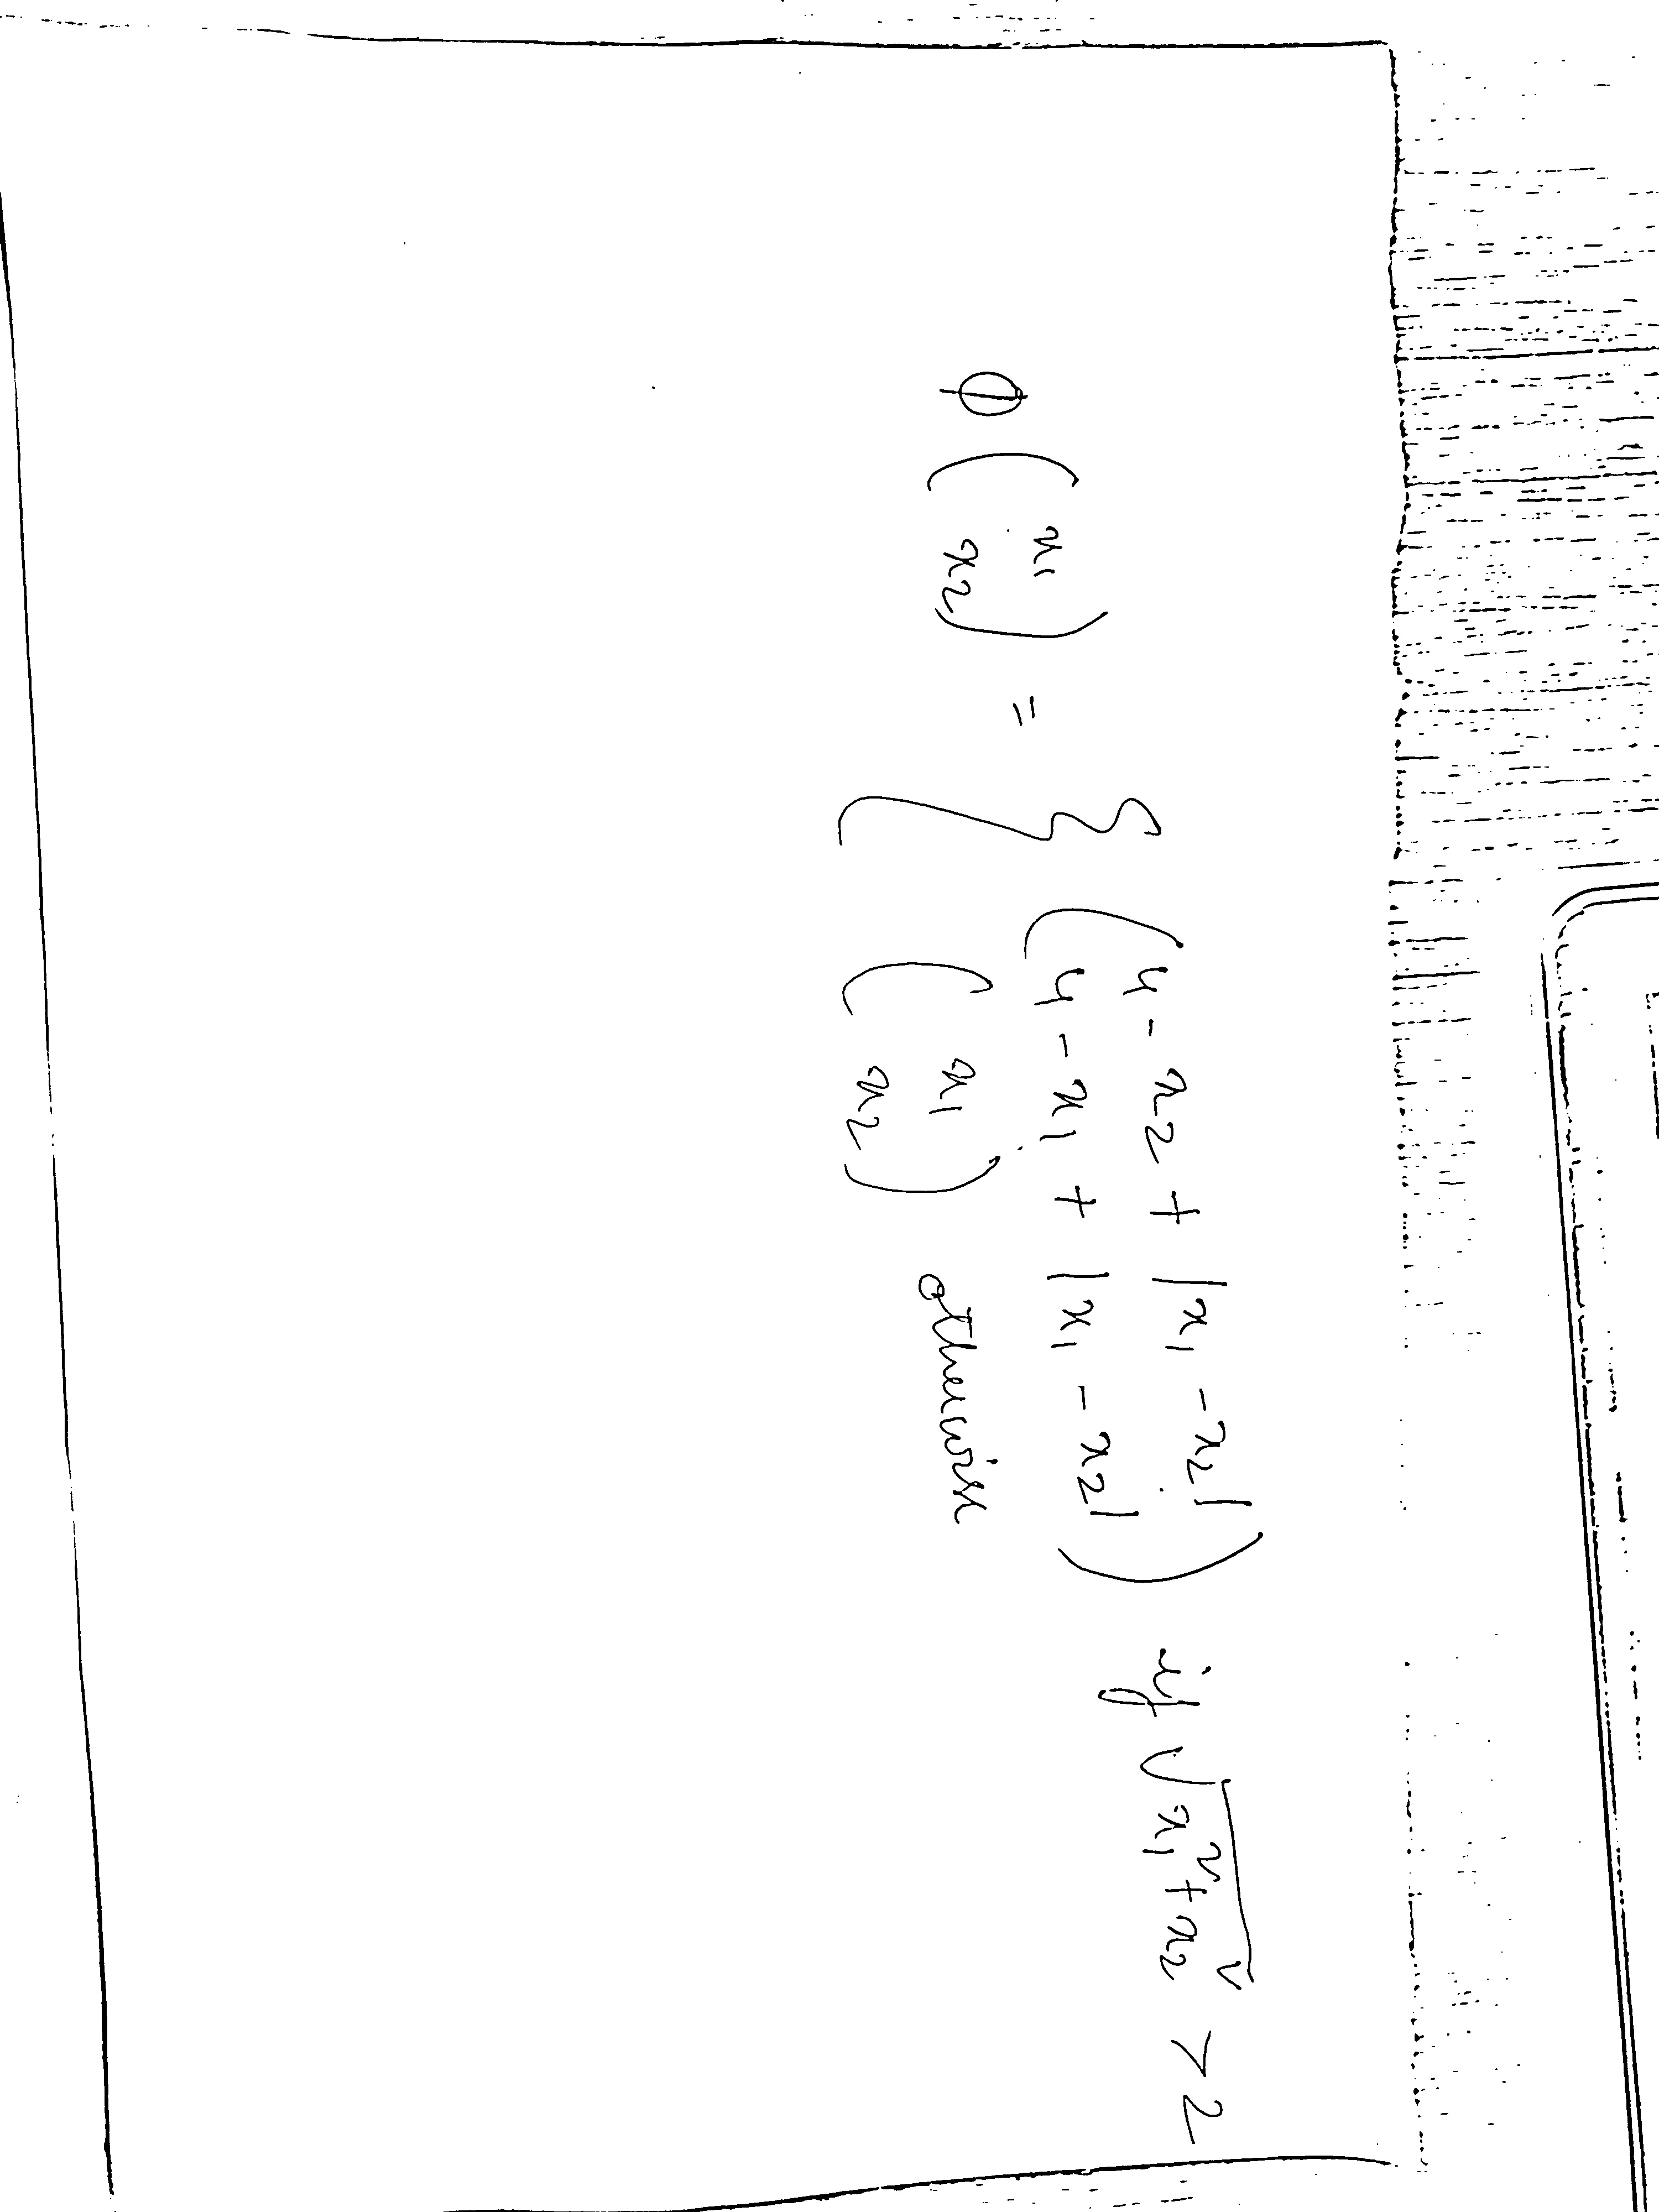 ϕ(x₁ x₂) = { (4 - x₂ + |x₁ - x₂| 4 - x₁ + |x₁ - x₂|) if √(x₁² + x₂²) > 2
(x₁ x₂) otherwise